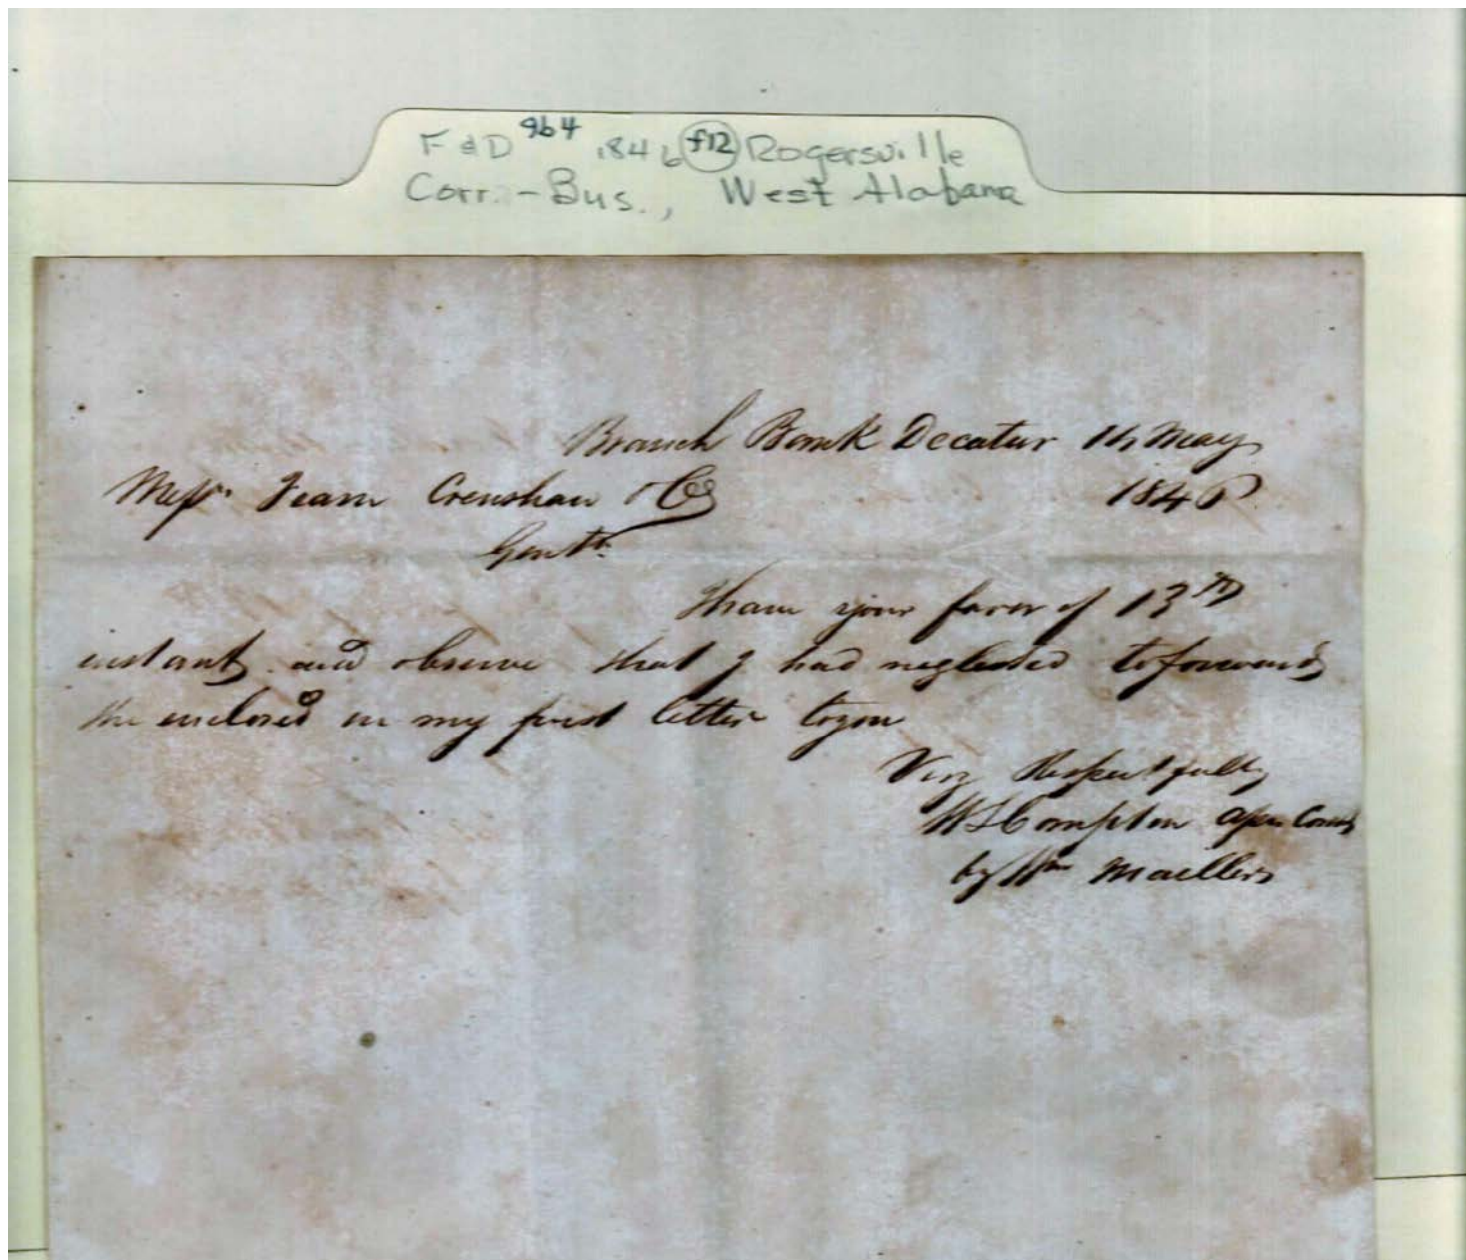 F & D 964 1846 f12 Rogersville
Corr. - Bus., West Alabama
Branch Bank Decatur 14 May
Messrs Feam Crenshaw & Co 1846
Gentn.
I have your favor of 13th
instant and observe that I had neglected to forward
the enclosed in my first letter to you
Very Respectfully
Compton Coms
by Wm